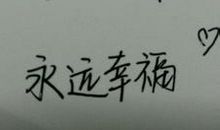 永远幸福